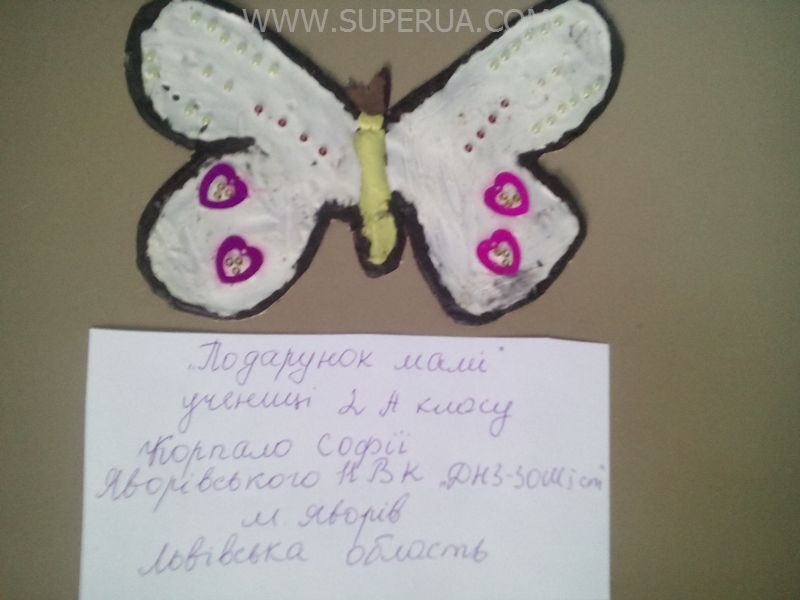 WWW.SUPERUA.COM
„Подарунок мамі"
учениці 2 А класу
Корпало Софії
Яворівського НВК „ДНЗ-ЗОШ І ст"
м. Яворів
Львівська область